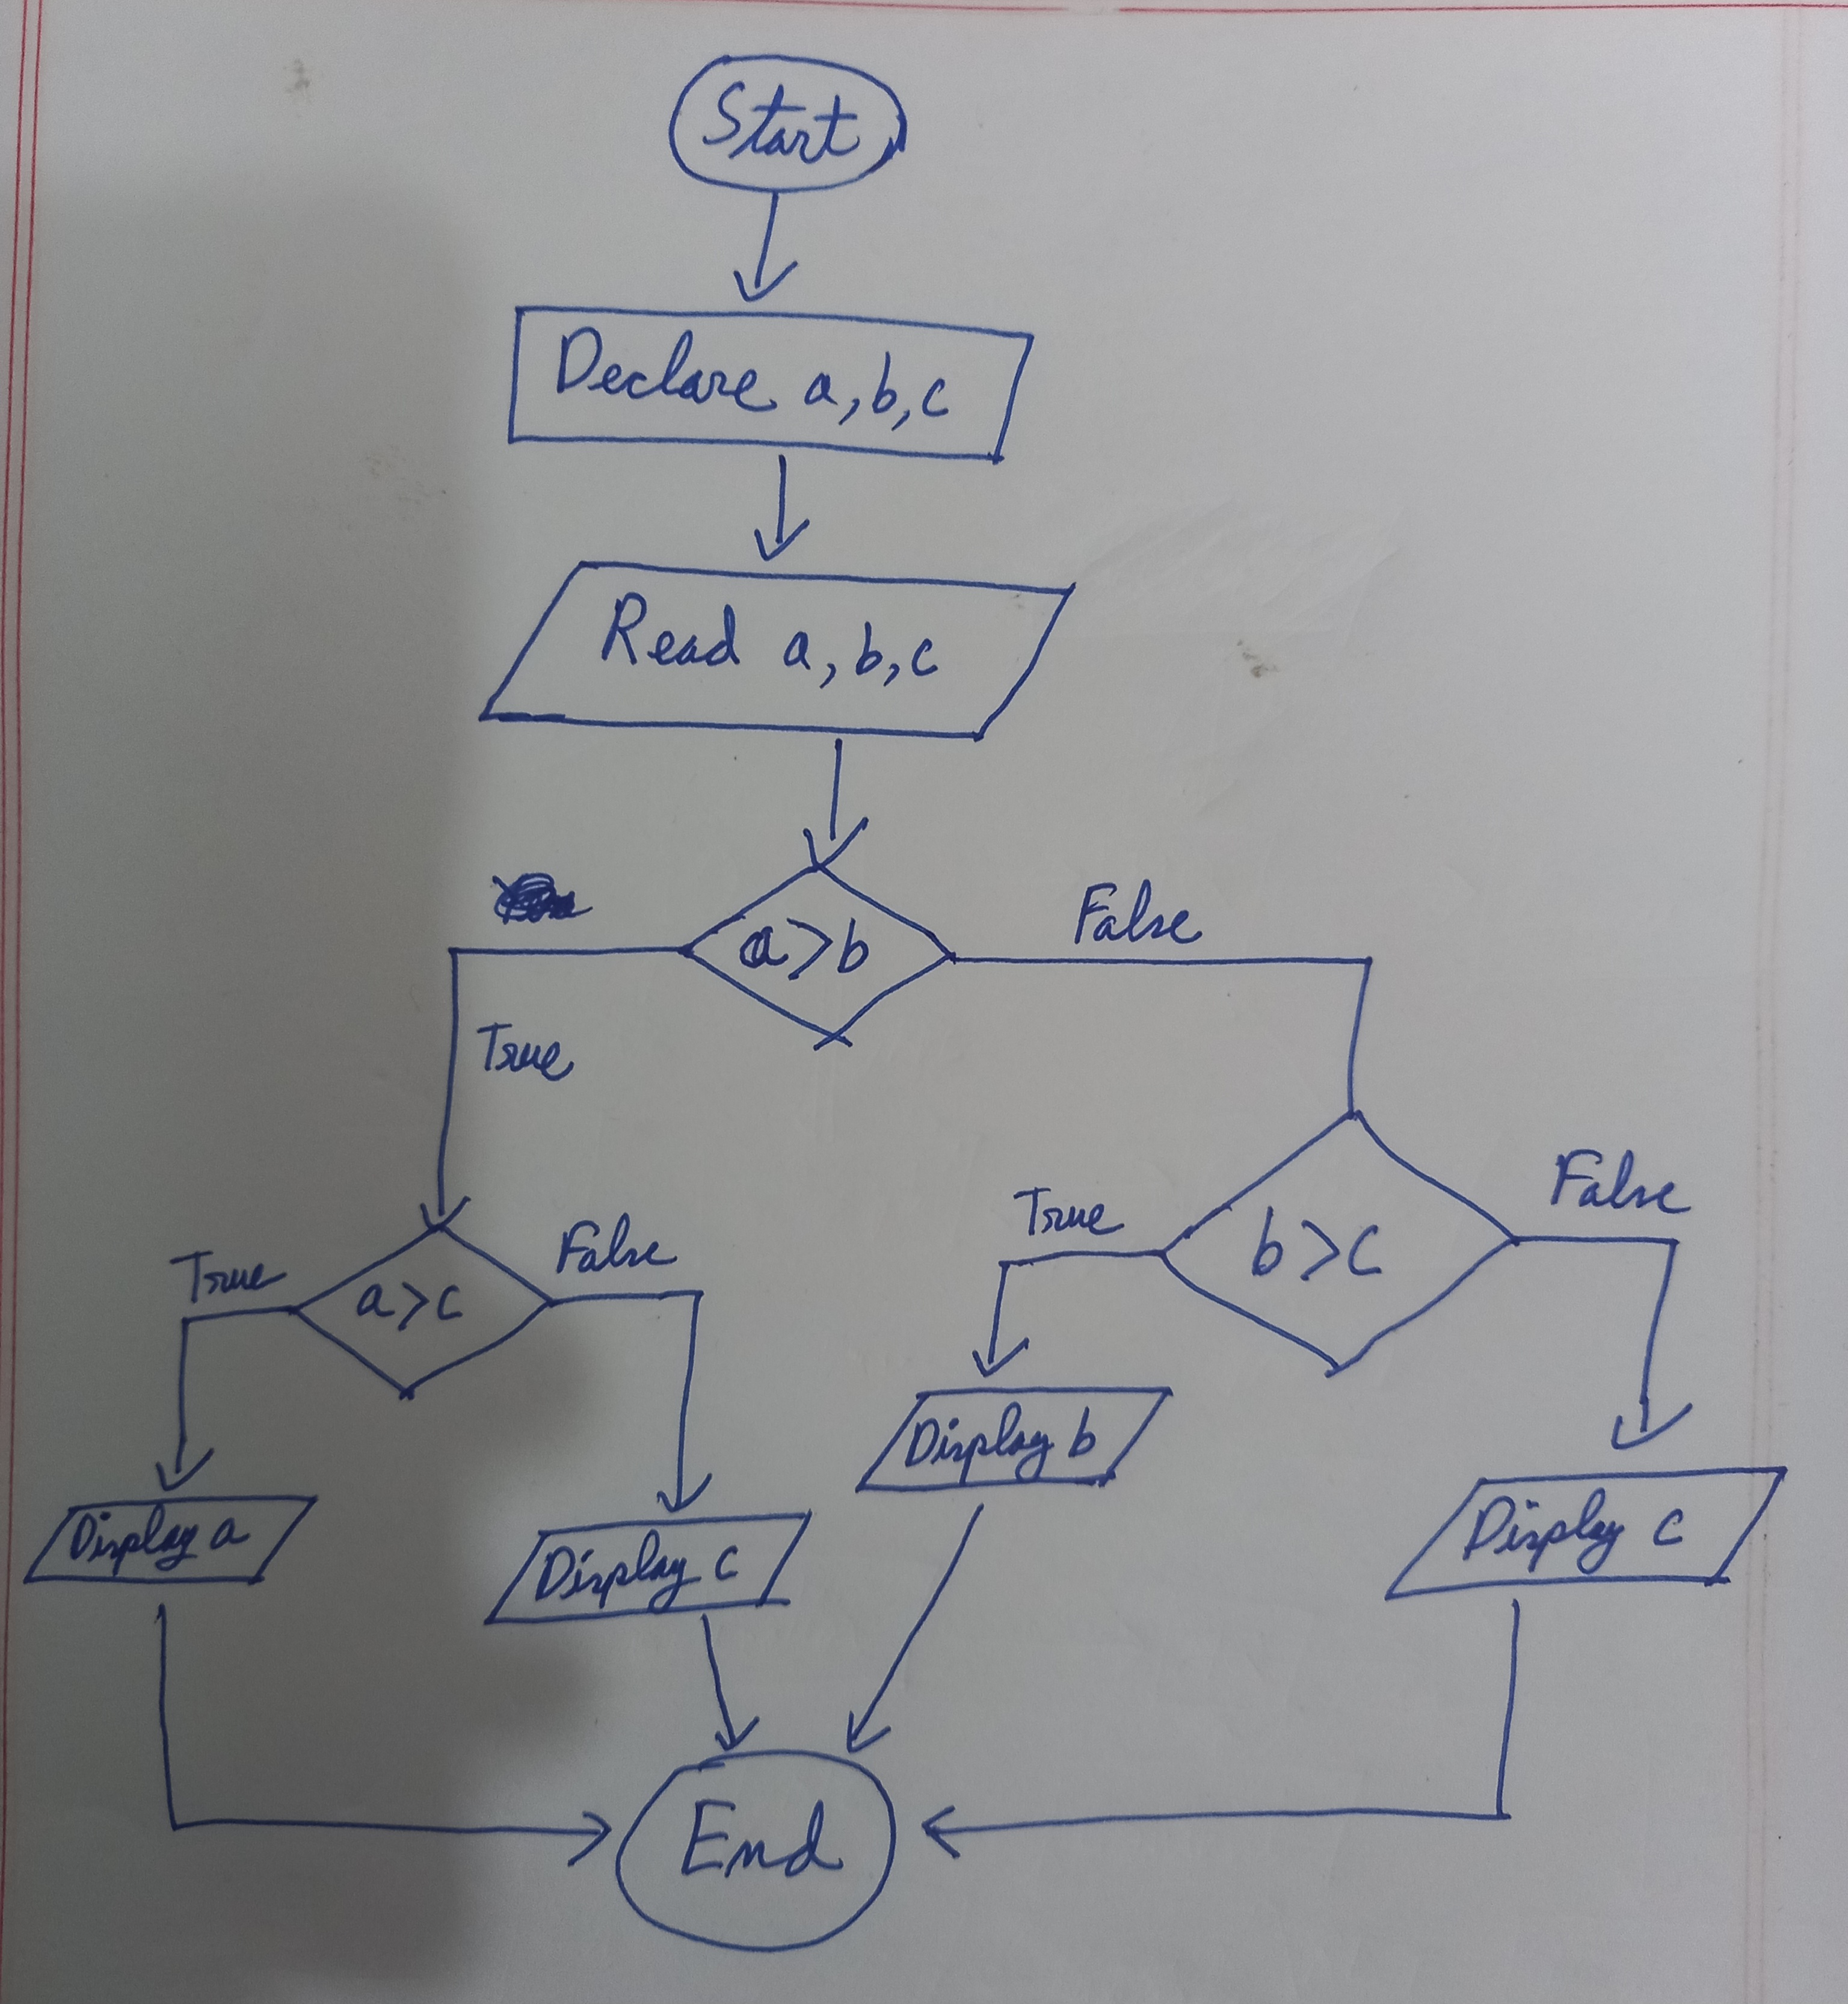 Start
Declare a, b, c
Read a, b, c
a > b
False
True
True
a > c
False
True
b > c
False
Display a
Display c
Display b
Display c
End